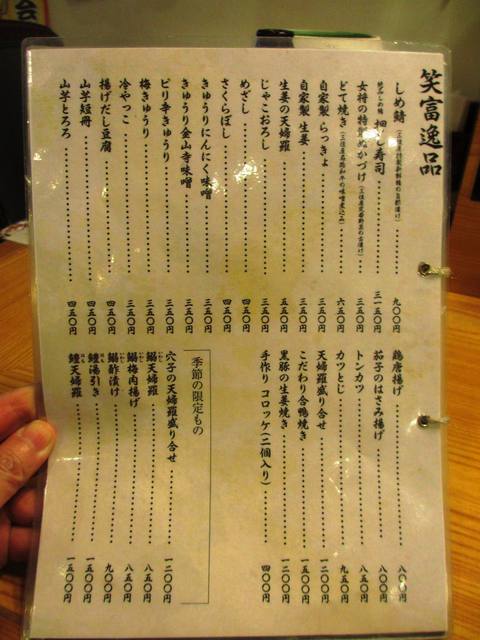 笑富逸品
しめ鯖 九〇〇円
押し寿司 三一五〇円
女将の特製ぬかづけ 三五〇円
どて焼き 六五〇円
自家製 らっきょ 三五〇円
自家製 生姜 三五〇円
生姜の天婦羅 五五〇円
じゃこおろし 三五〇円
めざし 四五〇円
さくらぼし 四五〇円
きゅうりにんにく味噌 三五〇円
きゅうり金山寺味噌 三五〇円
ピリ辛きゅうり 三五〇円
梅きゅうり 三五〇円
冷やっこ 三五〇円
揚げだし豆腐 四五〇円
山芋短冊 四五〇円
山芋とろろ 四五〇円
鶏唐揚げ 八〇〇円
茄子のはさみ揚げ 八〇〇円
トンカツ 八五〇円
カツとじ 九五〇円
天婦羅盛り合せ 一二〇〇円
こだわり合鴨焼き 一五〇〇円
黒豚の生姜焼き 一二〇〇円
手作り コロッケ(二個入り) 四〇〇円
季節の限定もの
穴子の天婦羅盛り合せ 一二〇〇円
鰯天婦羅 八五〇円
鰯梅肉揚げ 八五〇円
鰯酢漬け 九〇〇円
鱧湯引き 一五〇〇円
鱧天婦羅 一五〇〇円